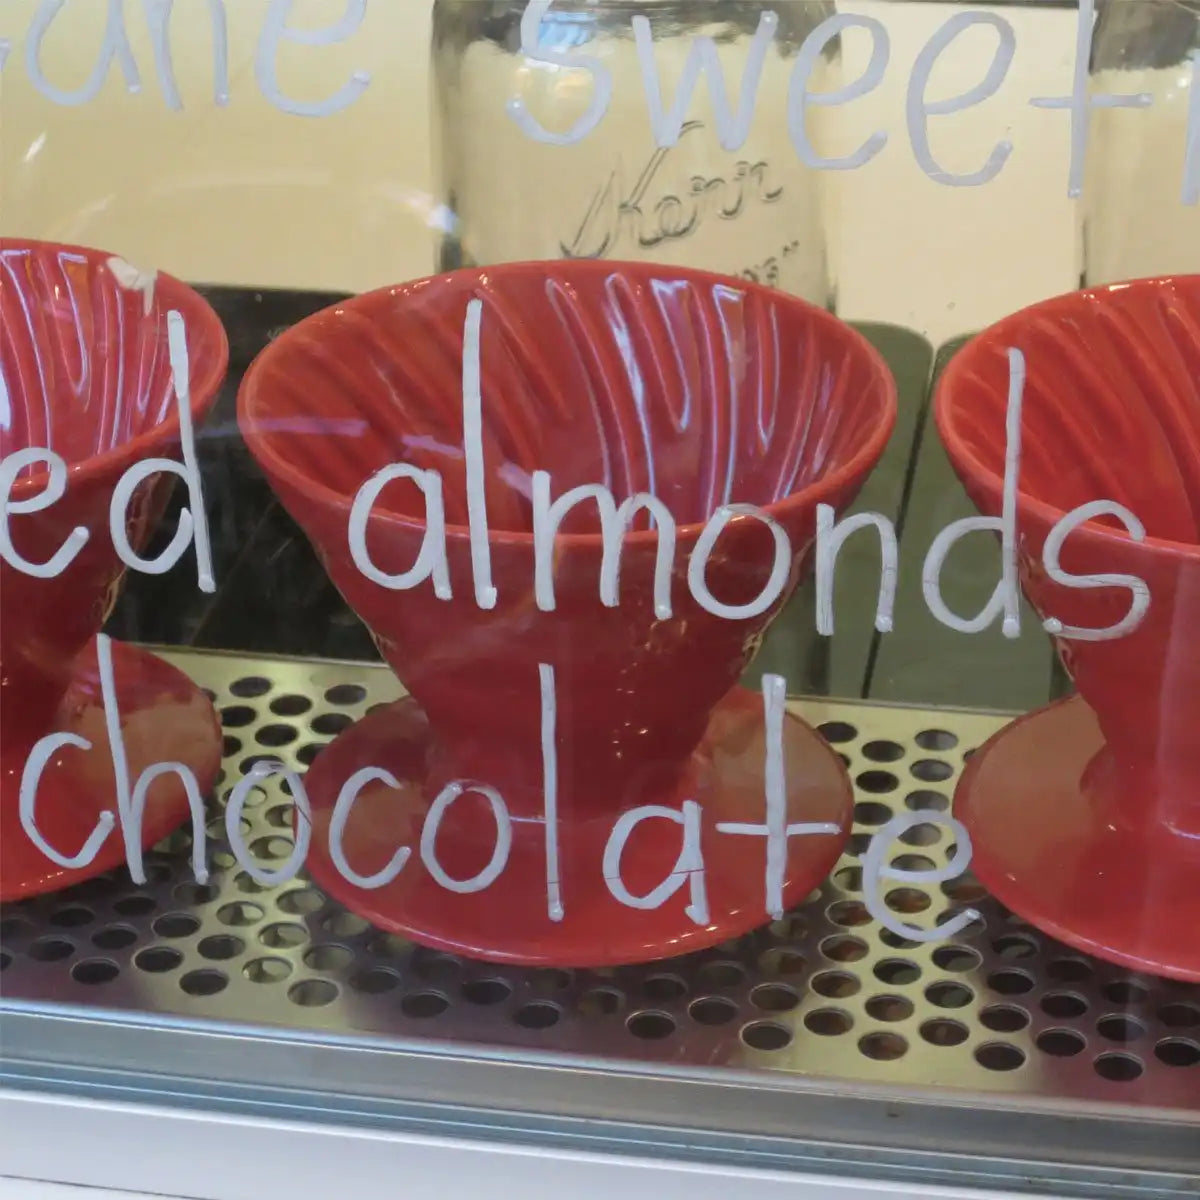 sweet
Kerr
ed almonds
chocolate